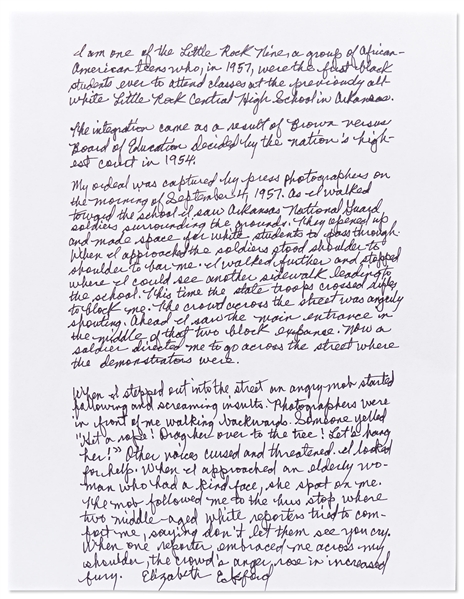 I am one of the Little Rock Nine, a group of African-
American teens who, in 1957, were the first black
students ever to attend classes at the previously all-
white Little Rock Central High School in Arkansas.
The integration came as a result of Brown versus
Board of Education decided by the nation's high-
est court in 1954.
My ordeal was captured by press photographers on
the morning of September 4, 1957. As I walked
toward the school I saw Arkansas National Guard
soldiers surrounding the grounds. They opened up
and made space for white students to pass through.
When I approached the soldiers stood shoulder to
shoulder to bar me. I walked further and stepped
where I could see another sidewalk leading to
the school. This time the state troops crossed rifles
to block me. The crowd across the street was angrily
shouting. Ahead I saw the main entrance in
the middle of that two block expanse. Now a
soldier directed me to go across the street where
the demonstrators were.
When I stepped out into the street an angry mob started
following and screaming insults. Photographers were
in front of me walking backwards. Someone yelled
"Get a rope! Drag her over to the tree! Let's hang
her!" Other voices cursed and threatened. I looked
for help. When I approached an elderly wo-
man who had a kind face, she spat on me.
The mob followed me to the bus stop where
two middle-aged white reporters tried to com-
fort me, saying don't let them see you cry.
When one reporter embraced me across my
shoulder, the crowd's anger rose in increased
fury. Elizabeth Eckford